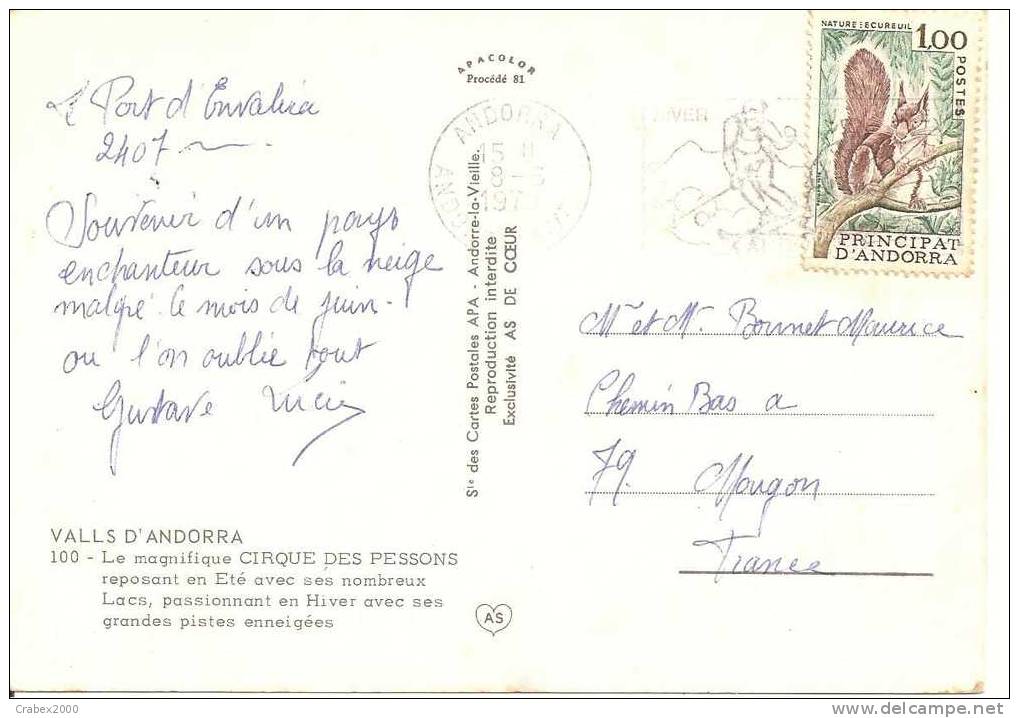 APACOLOR
Procédé 81
NATURE : ECUREUIL
1,00
POSTES
PRINCIPAT
D'ANDORRA
ANDORRA
15 H
8
HIVER
Port d'Envalira
2407
Souvenir d'un pays
enchanteur sous la neige
malgré le mois de juin
ou l'on oublie tout
Gustave
Bonnet Maurice
Chemin Bas a
79. Mougon
France
Ste des Cartes Postales APA - Andorre-la-Vieille.
Reproduction interdite
Exclusivité AS DE CŒUR
VALLS D'ANDORRA
100 - Le magnifique CIRQUE DES PESSONS
reposant en Eté avec ses nombreux
Lacs, passionnant en Hiver avec ses
grandes pistes enneigées
AS
Crabex2000
www.delcampe.net